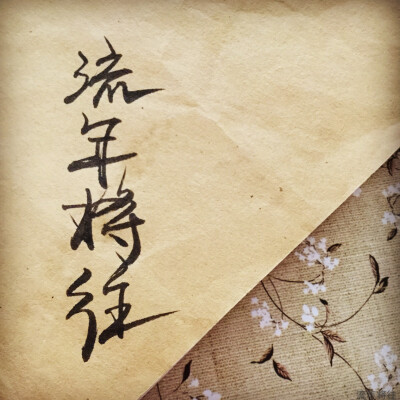 流年将往